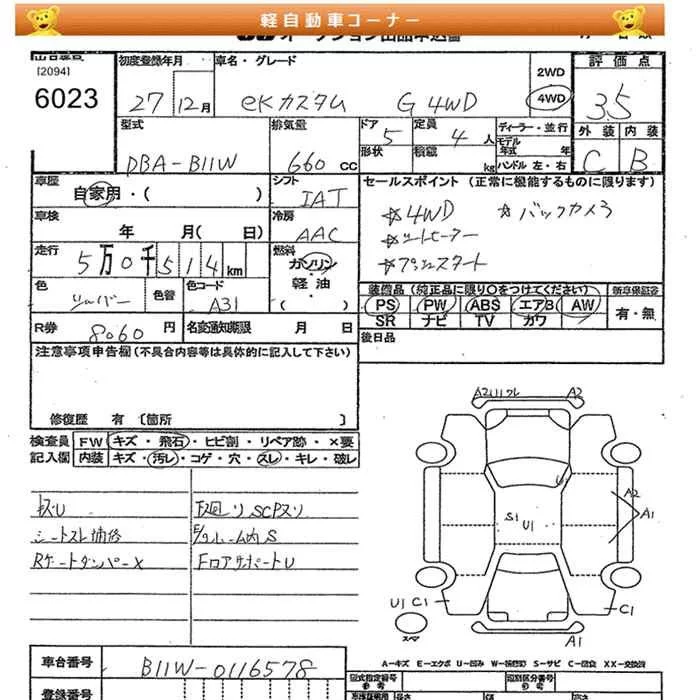 軽自動車コーナー
[2094]
6023
初度登録年月
27 12月
車名・グレード
eKカスタム G 4WD
2WD
4WD
評価点
3.5
外装 内装
C B
型式
DBA-B11W
排気量
660 CC
ドア 5
形状
定員 4 人
積載 kg
ディーラー・並行
モデル年式 年
ハンドル 左・右
車歴
自家用・( )
シフト
IAT
セールスポイント (正常に機能するものに限ります)
☆4WD ☆バックカメラ
☆シートヒーター
☆プッシュスタート
車検
年 月( 日)
冷房
AAC
走行
5万0千514km
燃料
ガソリン
・
軽油
( )
色
シルバー
色替
色コード
A31
装備品 (純正品に限り○をつけてください)
PS PW ABS エアB AW
SR ナビ TV カワ
新車保証書
有・無
R券 8060 円
名変通知期限 月 日
後日品
注意事項申告欄(不具合内容等は具体的に記入して下さい)
修復歴 有 〔箇所 〕
検査員
記入欄
FW キズ・飛石・ヒビ割・リペア跡・×要
内装 キズ・汚レ・コゲ・穴・スレ・キレ・破レ
下廻リ SCPスリ
シートスレ 補修
Eグルーム内S
Rゲートダンパー×
FロアサポートU
A2 A2
U1
S1 U1
A2
A1
U1 C1
C1
スペア
A1
A-キズ E-エクボ U-凹み W-補修跡 S-サビ C-腐食 XX-交換済
車台番号
B11W-0116578
登録番号
型式指定番号
類別区分番号
長さ